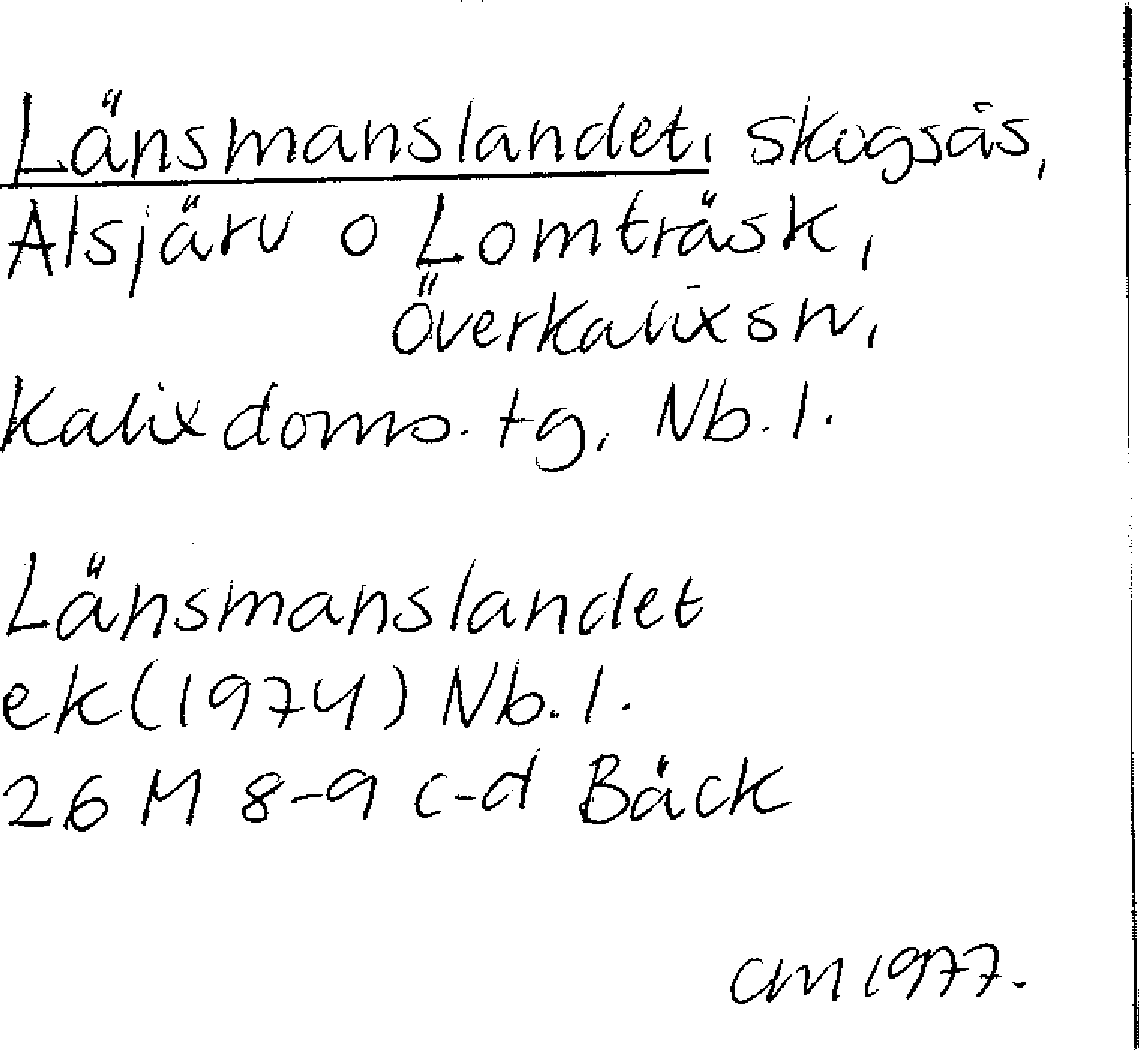 Länsmanslandet, skogsås,
Alsjärv o Lomträsk,
Överkalix sn,
Kalix doms. tg, Nb. l.
Länsmanslandet
ek (1974) Nb. l.
26 M 8-9 c-d Bäck
CM 1977.